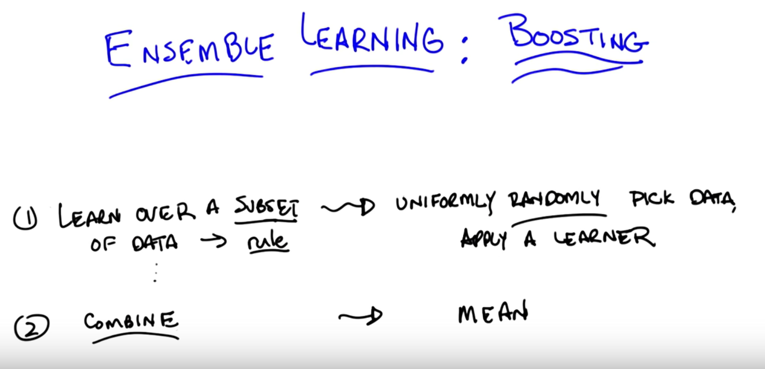 ENSEMBLE LEARNING: BOOSTING
(1) LEARN OVER A SUBSET ⟿ UNIFORMLY RANDOMLY PICK DATA,
OF DATA → rule APPLY A LEARNER
⋮
(2) COMBINE ⟿ MEAN